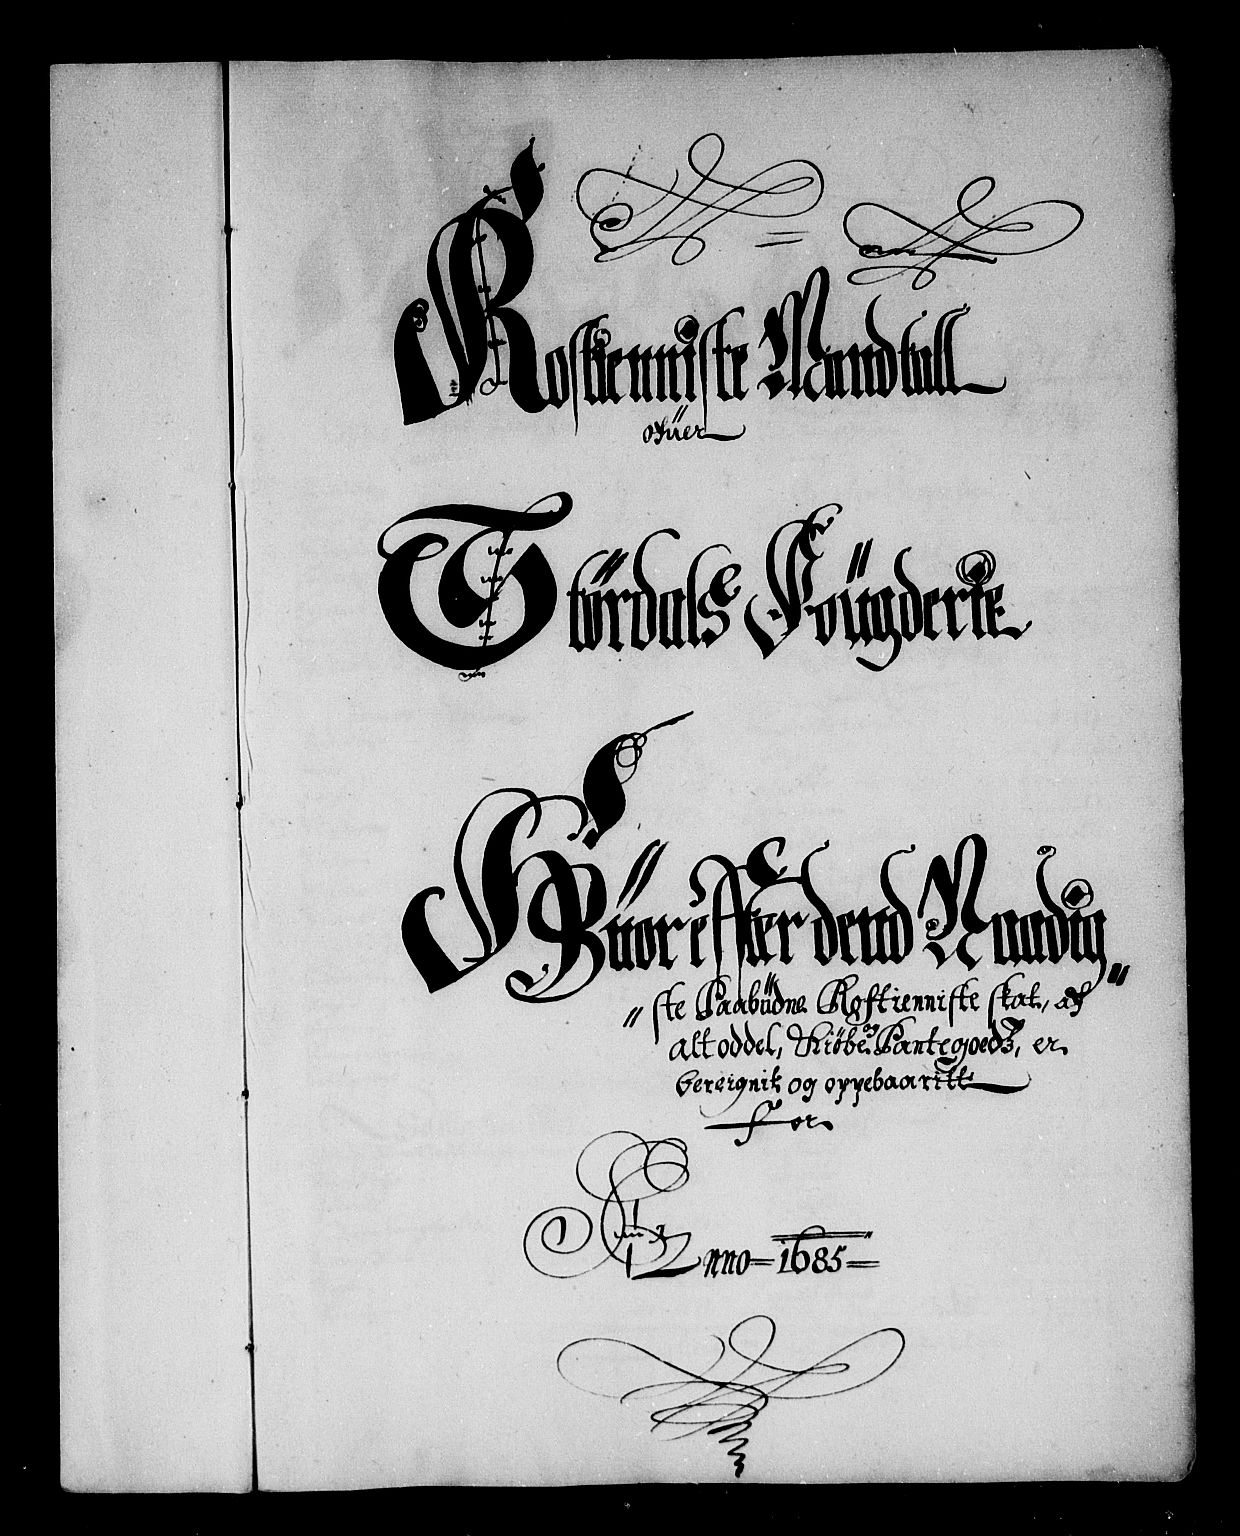 Rostienniste Mandtall
ofüer
Stördals Foügderie
Hüor effter dend Naadig„
„ste Paabüdne Rostienniste skat, af
alt oddel, Kiøbe Pantegoeds, er
bereignit og oppebaaritt
for
Anno 1685